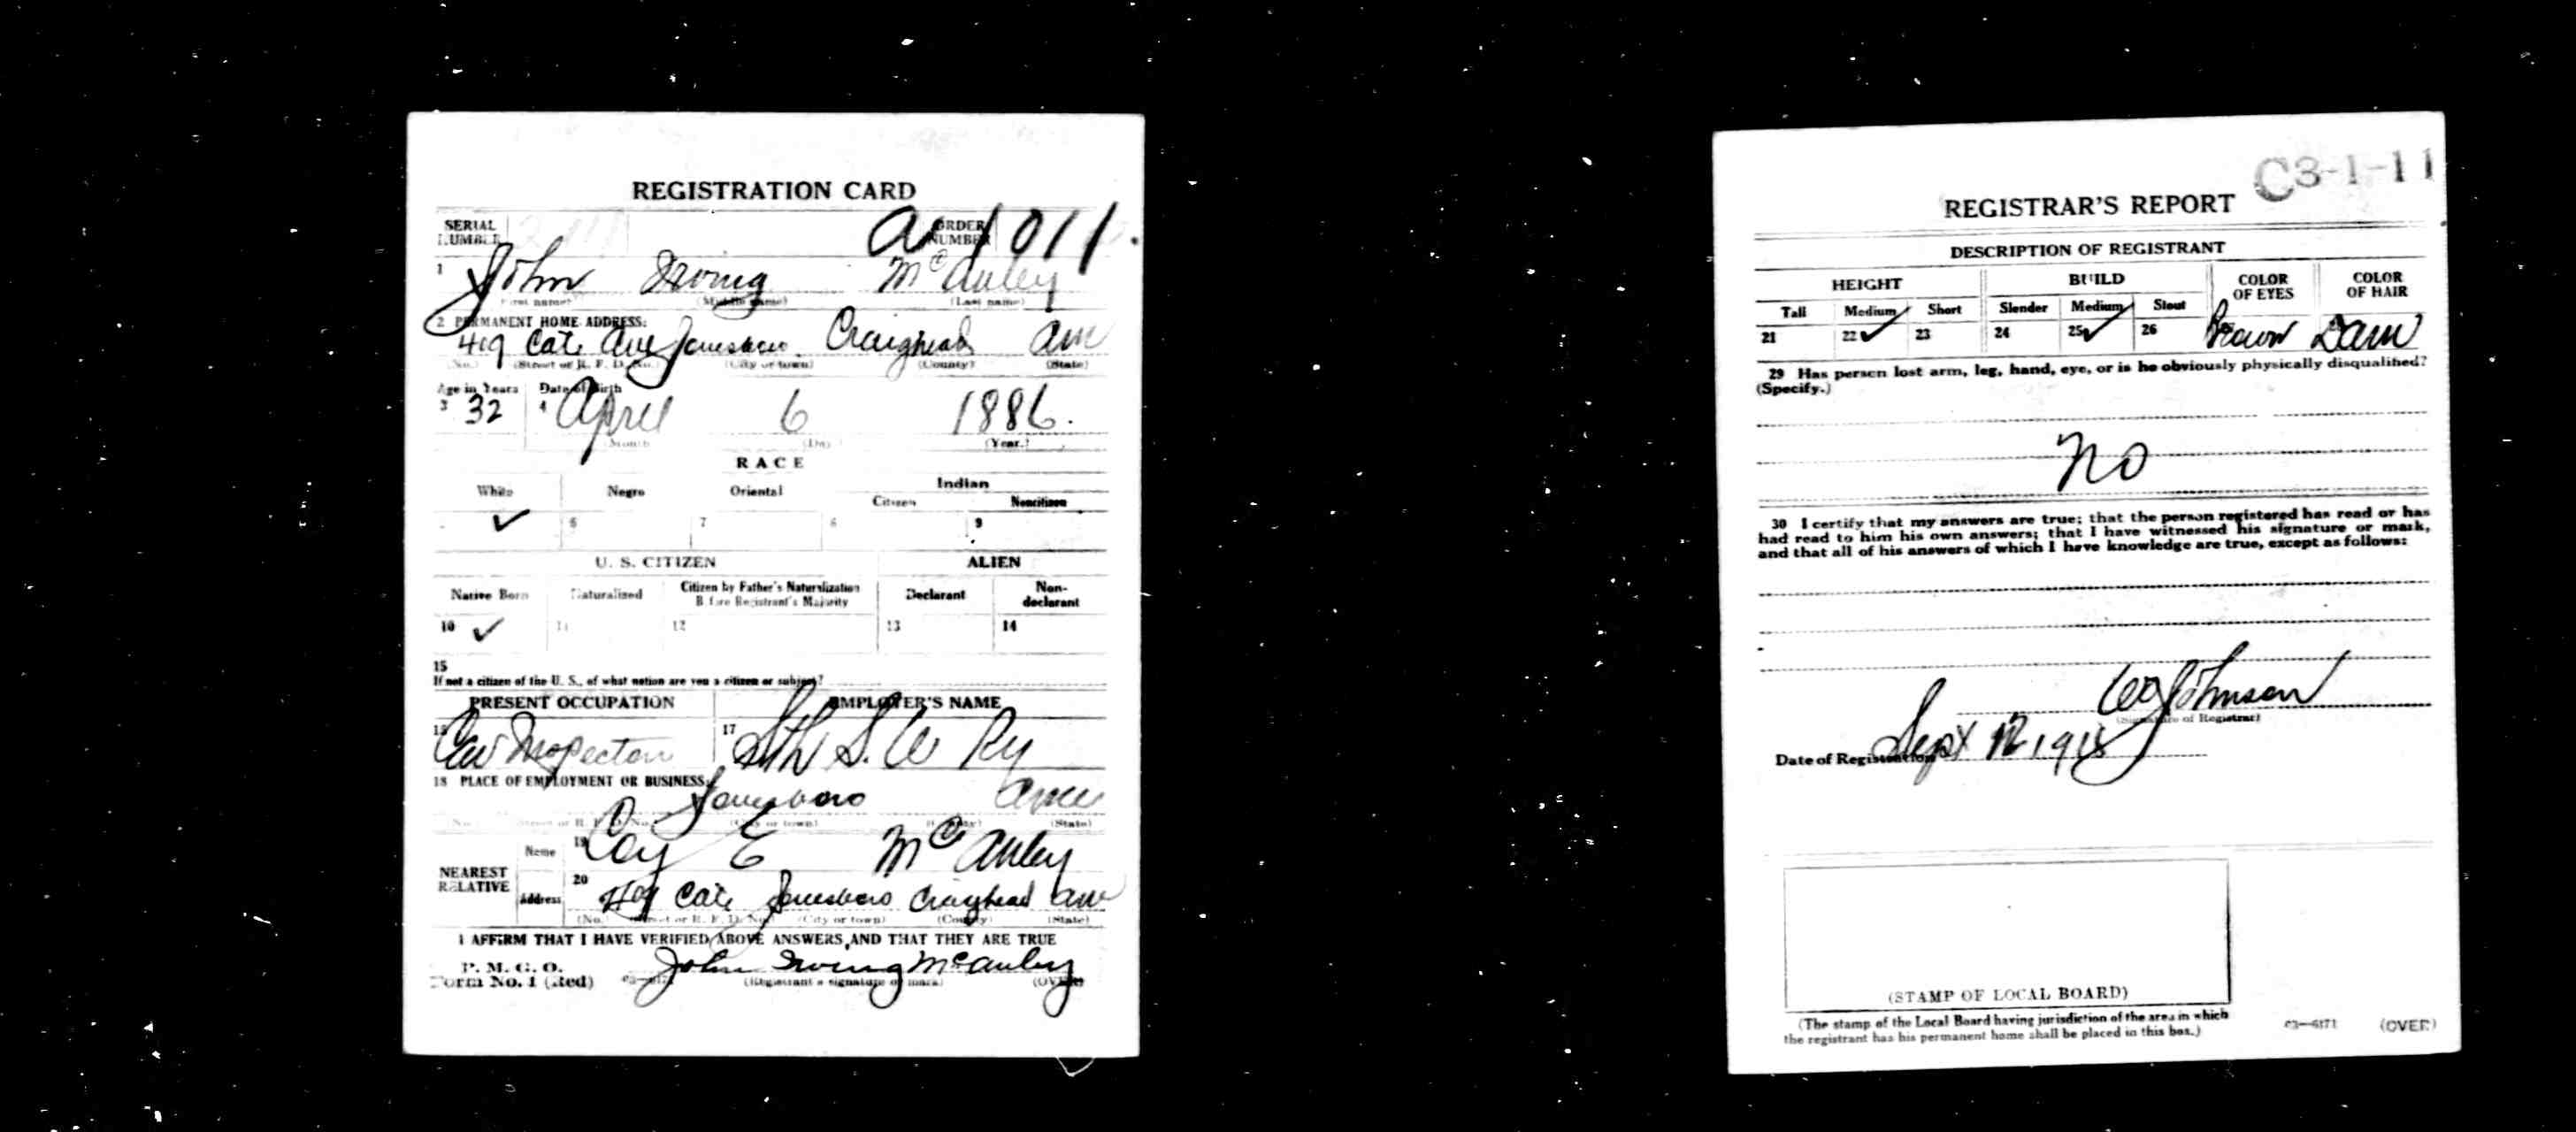 REGISTRATION CARD
SERIAL NUMBER
ORDER NUMBER
a 1011.
1 John Irving McAuley
(First name) (Middle name) (Last name)
2 PERMANENT HOME ADDRESS:
409 Cate Ave Jonesboro Craighead Ark
(No.) (Street or R. F. D. No.) (City or town) (County) (State)
Age in Years Date of Birth
3 32 4 April 6 1886.
(Month) (Day) (Year.)
RACE
White Negro Oriental Indian
Citizen Noncitizen
✓ 6 7 8 9
U. S. CITIZEN ALIEN
Native Born Naturalized Citizen by Father's Naturalization Before Registrant's Majority Declarant Non-declarant
10 ✓ 11 12 13 14
15
If not a citizen of the U. S., of what nation are you a citizen or subject?
PRESENT OCCUPATION EMPLOYER'S NAME
16 Car Inspector 17 Sth S. W Ry
18 PLACE OF EMPLOYMENT OR BUSINESS:
Jonesboro Ark
(No.) (Street or R. F. D. No.) (City or town) (County) (State)
NEAREST RELATIVE
Name 19 Coy E McAuley
Address 20 409 Cate Jonesboro Craighead Ark
(No.) (Street or R. F. D. No.) (City or town) (County) (State)
I AFFIRM THAT I HAVE VERIFIED ABOVE ANSWERS AND THAT THEY ARE TRUE
P. M. G. O.
Form No. 1 (Red) 03—6171 John Irving McAuley
(Registrant's signature or mark) (OVER)
C3-1-11
REGISTRAR'S REPORT
DESCRIPTION OF REGISTRANT
HEIGHT BUILD COLOR OF EYES COLOR OF HAIR
Tall Medium Short Slender Medium Stout
21 22 ✓ 23 24 25 ✓ 26 Brown Dark
29 Has person lost arm, leg, hand, eye, or is he obviously physically disqualified?
(Specify.)
No
30 I certify that my answers are true; that the person registered has read or has
had read to him his own answers; that I have witnessed his signature or mark,
and that all of his answers of which I have knowledge are true, except as follows:
Johnson
(Signature of Registrar)
Date of Registration Sept 12 1918
(STAMP OF LOCAL BOARD)
(The stamp of the Local Board having jurisdiction of the area in which
the registrant has his permanent home shall be placed in this box.)
03—6171 (OVER)